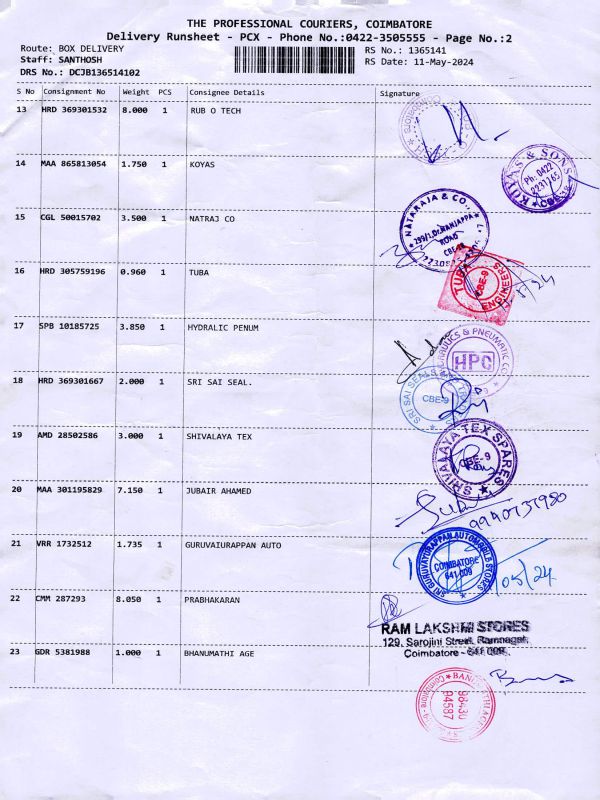 THE PROFESSIONAL COURIERS, COIMBATORE
Delivery Runsheet - PCX - Phone No.:0422-3505555 - Page No.:2
Route: BOX DELIVERY RS No.: 1365141
Staff: SANTHOSH RS Date: 11-May-2024
DRS No.: DCJB136514102
S No Consignment No Weight PCS Consignee Details Signature
13 HRD 369301532 8.000 1 RUB O TECH
14 MAA 865813054 1.750 1 KOYAS
KOYAS & SONS
Ph: 0422
2231165
15 CGL 50015702 3.500 1 NATRAJ CO
NATARAJA & CO.,
299/1, Dr. NANJAPPA
ROAD
CBE-18
16 HRD 305759196 0.960 1 TUBA
TUBA ENGINEERS
CBE-9
17 SPB 10185725 3.850 1 HYDRALIC PENUM
HPC
18 HRD 369301667 2.000 1 SRI SAI SEAL.
SRI SAI SEALS
CBE-9
19 AMD 28502586 3.000 1 SHIVALAYA TEX
SRIVALAYA TEX SPARES
CBE-9
20 MAA 301195829 7.150 1 JUBAIR AHAMED
9940737980
21 VRR 1732512 1.735 1 GURUVAIURRAPPAN AUTO
SRI GURUVAYURAPPAN AUTOMOBILE STORES
COIMBATORE
641 009
22 CMM 287293 8.050 1 PRABHAKARAN
RAM LAKSHMI STORES
129, Sarojini Street, Ramnagar,
Coimbatore - 641 009.
23 GDR 5381988 1.000 1 BHANUMATHI AGE
98430
94587